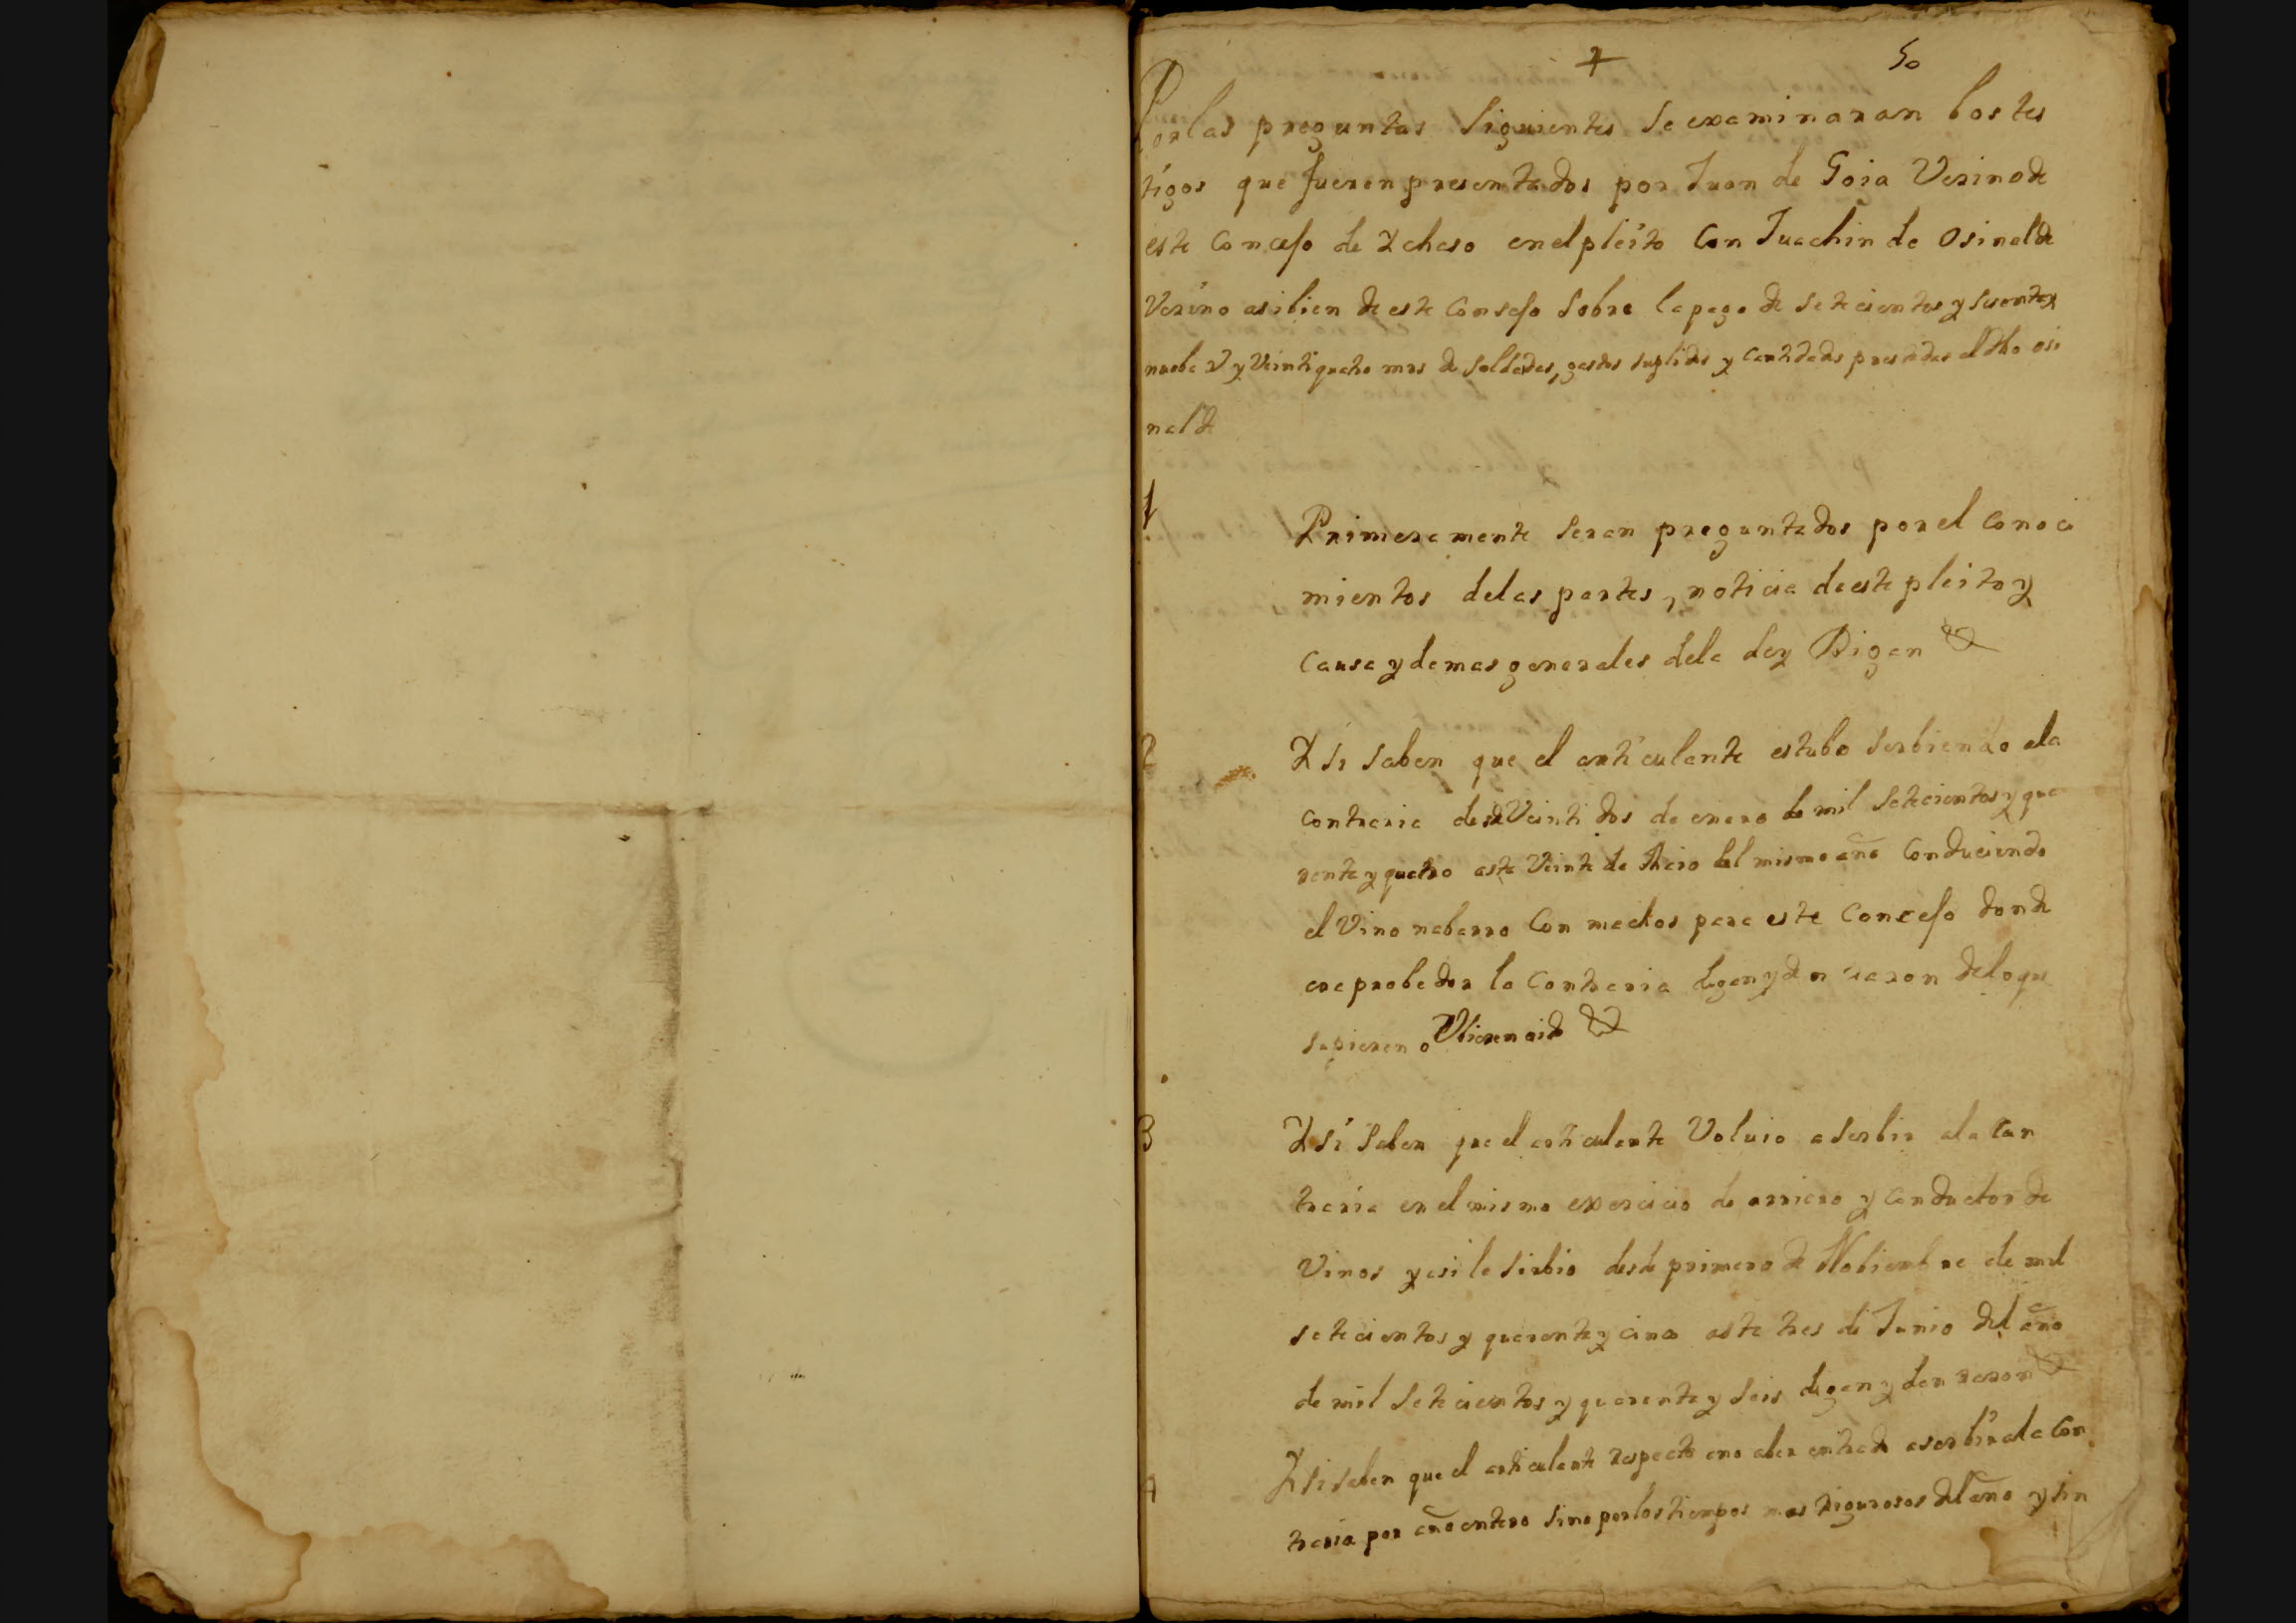 50
Por las preguntas siguientes se examinaran los tes
tigos que fueren presentados por Juan de Goia Vezino de
este Concejo de Ychaso en el pleito Con Juachin de Osinalde
Vezino asibien de este Consejo sobre la paga de setecientos y sesenta y
nuebe Rs y Veintiquatro mrs de soldadas, gastos suplidos y cantidades prestadas al dho osi
nalde
1
Primeramente seran preguntados por el Conoci
mientos de las partes, noticia de este pleito y
Causa y demas generales de la ley Digan
2
Y si saben que el articulante estubo serbiendo a la
contraria desde Veinti dos de enero de mil setecientos y qua
renta y quatro asta Veinte de del mismo año Conduciendo
el Vino nabarro Con machos para este Concejo donde
era probedor la Contraria digan y den razon de lo que
supieren o Ubieren oido
3
Y si saben que el articulante Volvio a serbir a la Con
traria en el mismo exercicio de arriero y Conductor de
Vinos y asi le sirbio desde primero de Nobiembre de mil
setecientos y quarenta y cinco asta tres de Junio del año
de mil setecientos y quarenta y seis digan y den razon
4
Y si saben que el articulante respecto a no aber entrado a serbir a la Con
traria por año entero sino por los tiempos mas rigurosos del año y sin